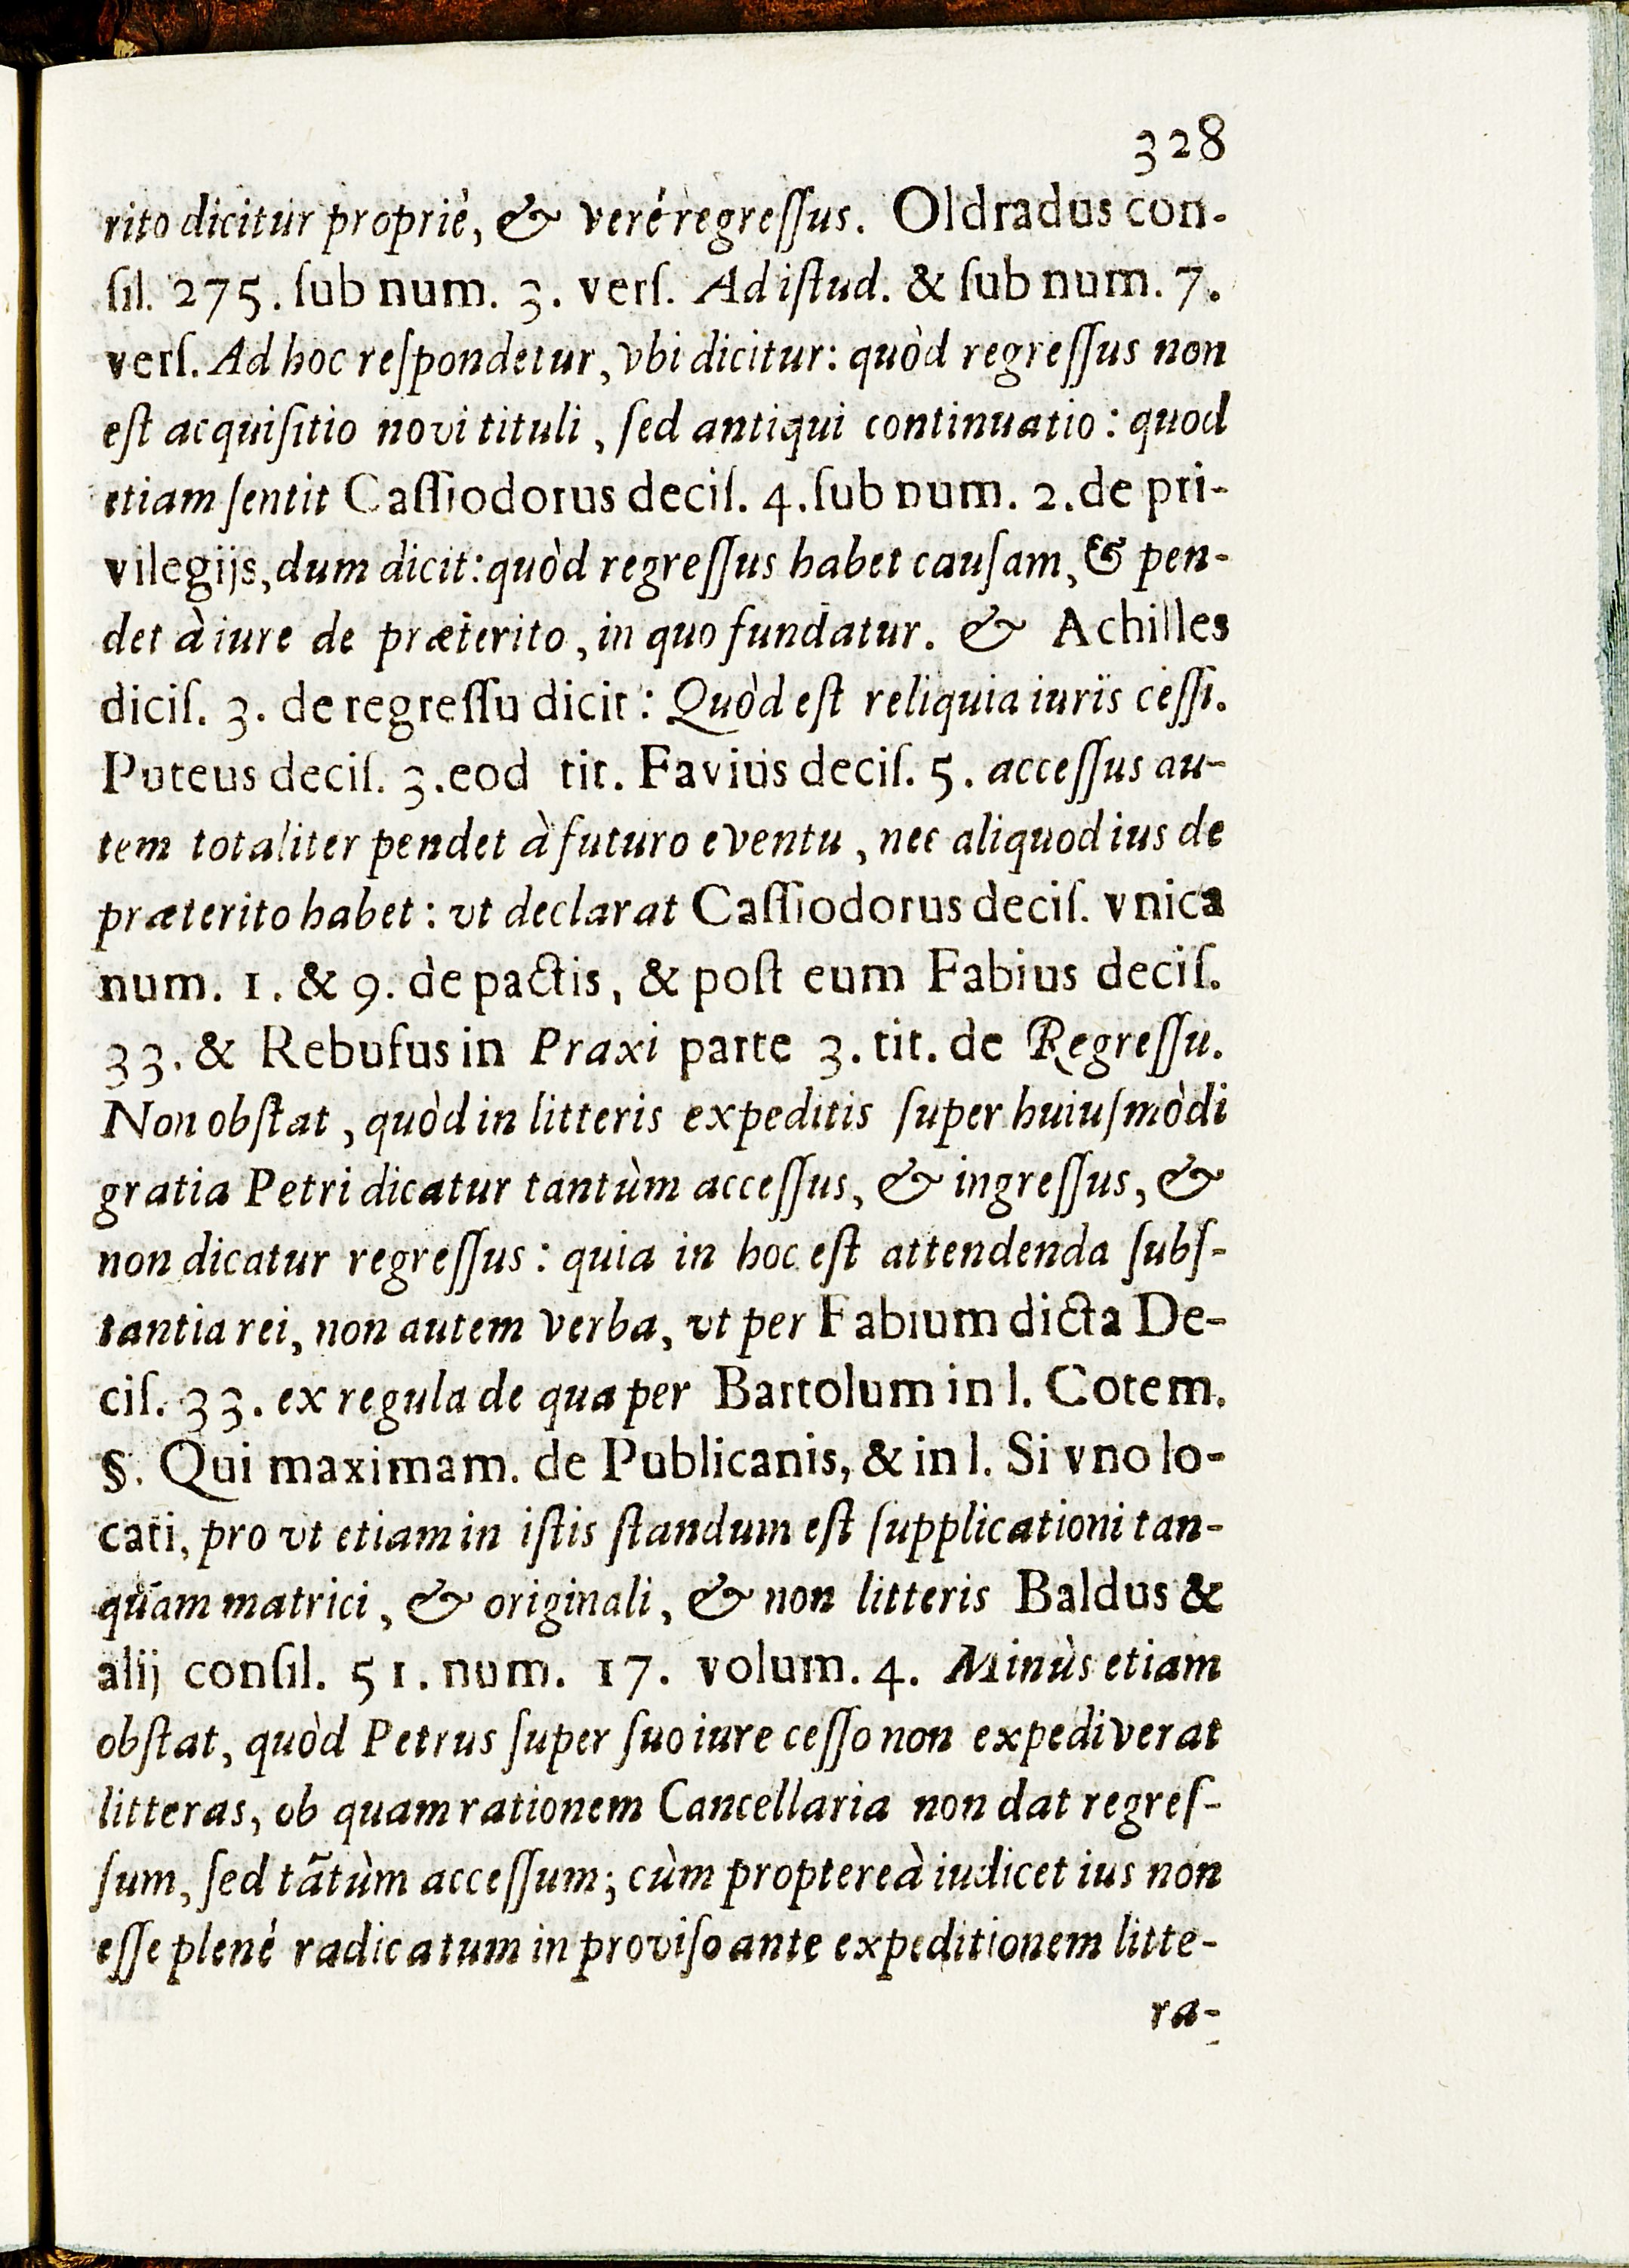 328
rito dicitur propriè, & verè regreſſus. Oldradus con-
ſil. 275. ſub num. 3. verſ. Ad iſtud. & ſub num. 7.
verſ. Ad hoc reſpondetur, vbi dicitur: quòd regreſſus non
eſt acquiſitio novi tituli, ſed antiqui continuatio: quod
etiam ſentit Caſſiodorus deciſ. 4. ſub num. 2. de pri-
vilegijs, dum dicit: quòd regreſſus habet cauſam, & pen-
det à iure de præterito, in quo fundatur. & Achilles
diciſ. 3. de regreſſu dicit: Quòd eſt reliquia iuris ceſſi.
Puteus deciſ. 3. eod tit. Favius deciſ. 5. acceſſus au-
tem totaliter pendet à futuro eventu, nec aliquod ius de
præterito habet: vt declarat Caſſiodorus deciſ. vnica
num. 1. & 9. de pactis, & poſt eum Fabius deciſ.
33. & Rebufus in Praxi parte 3. tit. de Regreſſu.
Non obſtat, quòd in litteris expeditis ſuper huiuſmòdi
gratia Petri dicatur tantùm acceſſus, & ingreſſus, &
non dicatur regreſſus: quia in hoc eſt attendenda ſubſ-
tantia rei, non autem verba, vt per Fabium dicta De-
ciſ. 33. ex regula de qua per Bartolum in l. Cotem.
§. Qui maximam. de Publicanis, & in l. Si vno lo-
cati, pro vt etiam in iſtis ſtandum eſt ſupplicationi tan-
quàm matrici, & originali, & non litteris Baldus &
alij conſil. 51. num. 17. volum. 4. Minùs etiam
obſtat, quòd Petrus ſuper ſuo iure ceſſo non expediverat
litteras, ob quam rationem Cancellaria non dat regreſ-
ſum, ſed tãtùm acceſſum; cùm proptereà iudicet ius non
eſſe plenè radicatum in proviſo ante expeditionem litte-
ra-